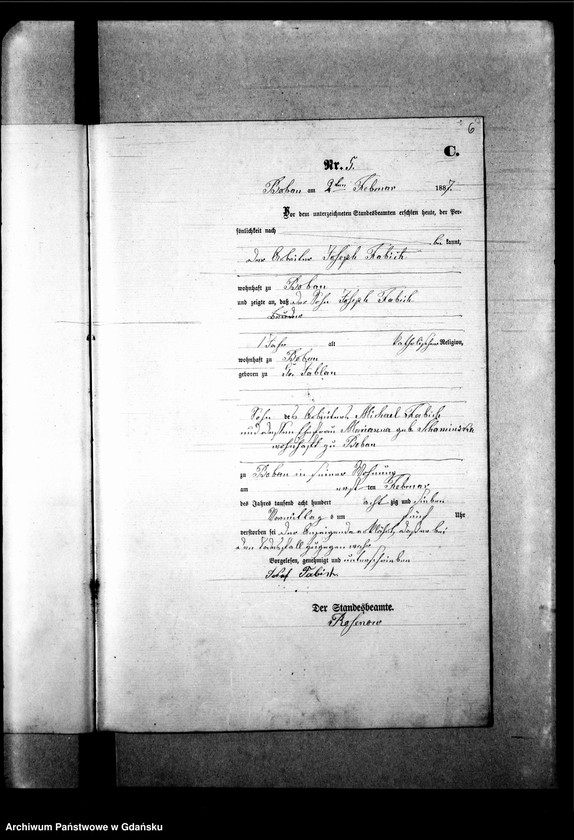 6
C.
Nr. 5.
Boban am 2ten Februar 1887.
Vor dem unterzeichneten Standesbeamten erschien heute, der Per-
sönlichkeit nach
be kannt,
der Arbeiter Joseph Fabich
wohnhaft zu Boban
und zeigte an, daß der Sohn Joseph Fabich
1 Jahr alt katholischer Religion,
wohnhaft zu Boban
geboren zu Gr. Jablau
Sohn des Arbeiters Michael Fabich
und dessen Ehefrau Marianna geb.
wohnhaft zu Boban
zu Boban in seiner Wohnung
am ersten Februar
des Jahres tausend acht hundert achtzig und sieben
Vormittags um fünf Uhr
verstorben sei der Anzeigende erklärt, daß er bei
dem Todesfall zugegen war
Vorgelesen, genehmigt und unterschrieben
Josef Fabich
Der Standesbeamte.
Rosenow
Archiwum Państwowe w Gdańsku